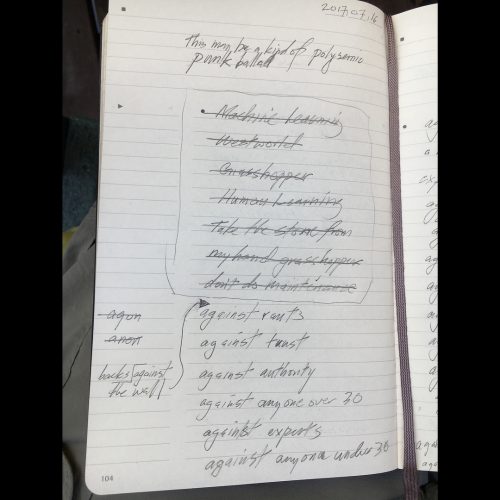 2017.07.16
This may be a kind of polysemic
punk ballad
Machine Learning
Westworld
Grasshopper
Human Learning
Take the stone from
my hand grasshopper
don't do maintenance
against rants
agon
against trust
anon
backs against
the wall
against authority
against anyone over 30
against experts
against anyone under 30
104